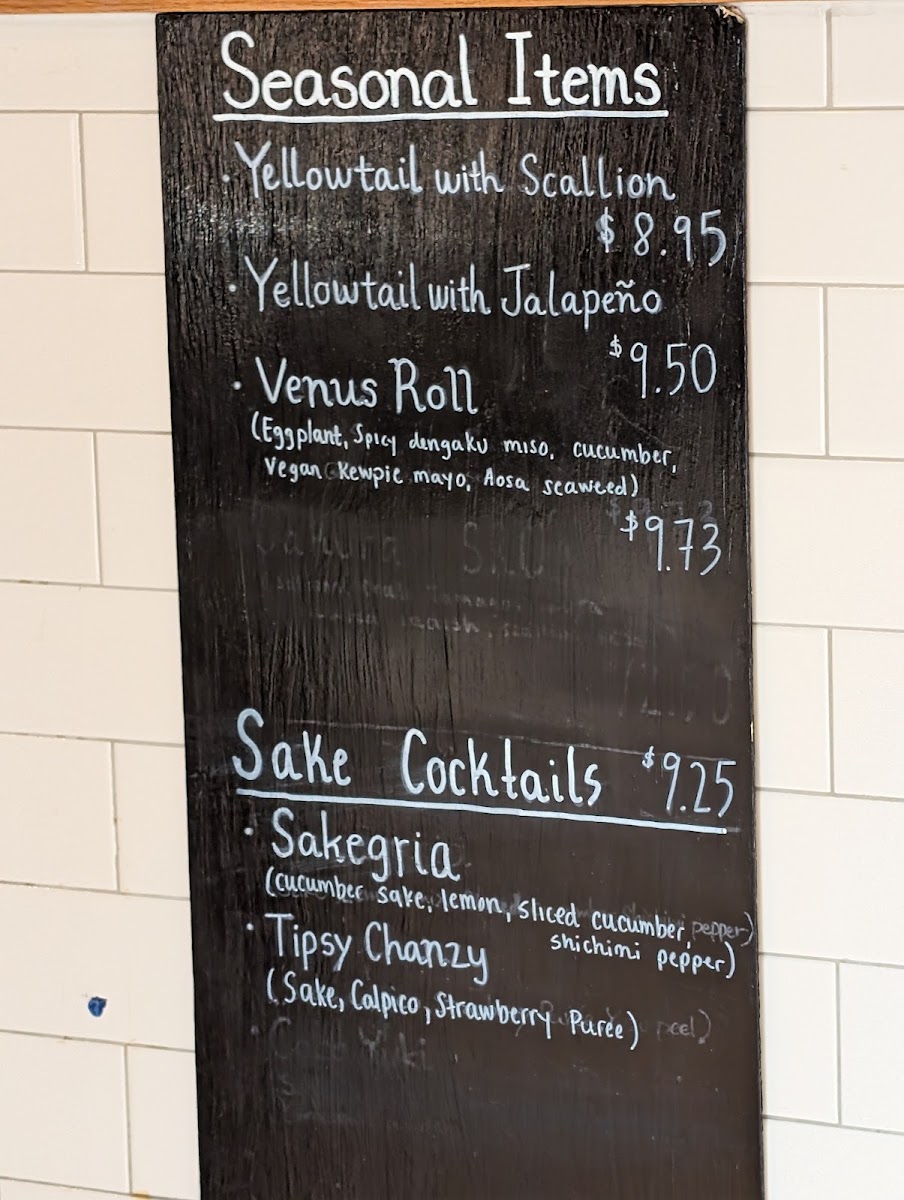 Seasonal Items
· Yellowtail with Scallion
$8.95
· Yellowtail with Jalapeño
$9.50
· Venus Roll
(Eggplant, Spicy dengaku miso, cucumber,
Vegan Kewpie mayo, Aosa seaweed)
$9.73
Sake Cocktails $9.25
· Sakegria
(cucumber sake, lemon, sliced cucumber, pepper)
shichimi pepper)
· Tipsy Chanzy
(Sake, Calpico, Strawberry Purée) peel)
Coco Yuki